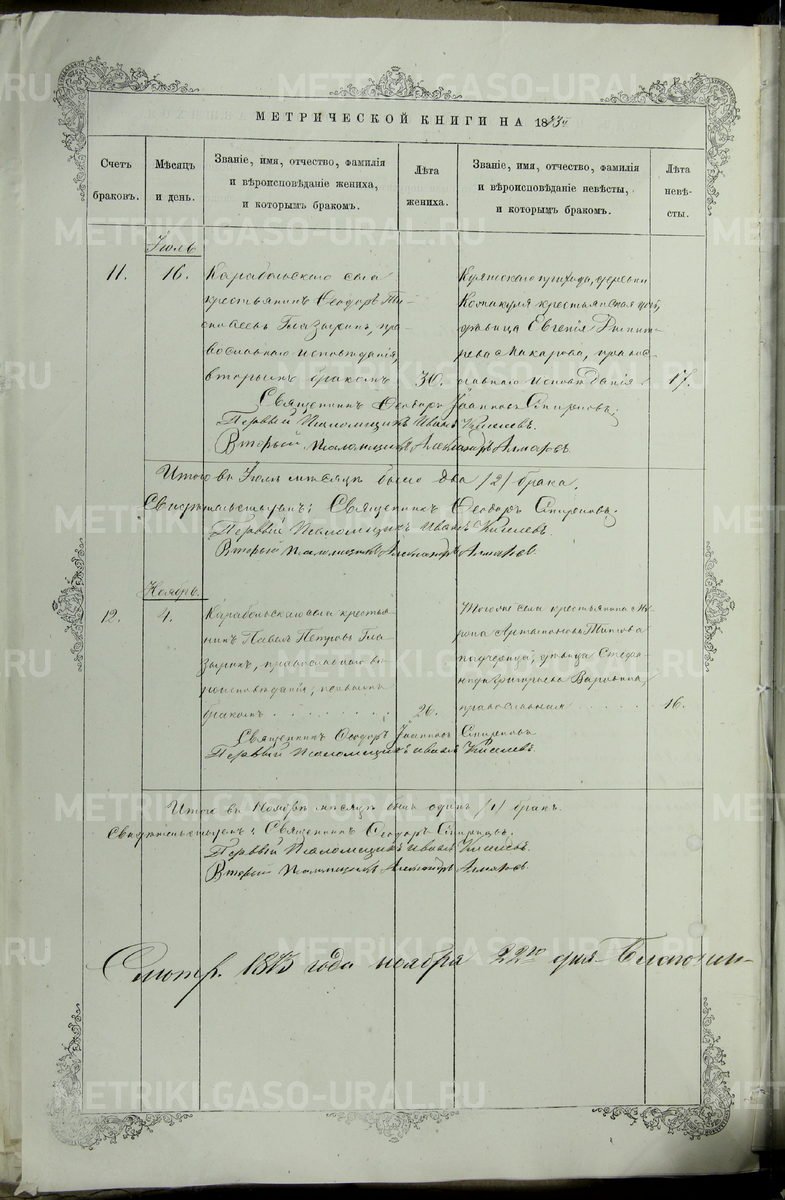 МЕТРИЧЕСКОЙ КНИГИ НА 1873й
Счетъ браковъ.
Мѣсяцъ и день.
Званіе, имя, отчество, фамилія и вѣроисповѣданіе жениха, и которымъ бракомъ.
Лѣта жениха.
Званіе, имя, отчество, фамилія и вѣроисповѣданіе невѣсты, и которымъ бракомъ.
Лѣта невѣ-сты.
Іюль
11.
16.
Карабольскаго села
крестьянинъ Ѳеодоръ
Глазыринъ, пра-
вославнаго исповѣданія,
вторымъ бракомъ
30.
прихода, деревни
крестьянская дочь,
дѣвица Евгенія Димит-
рева Макарова, правос-
лавнаго исповѣданія
17.
Священникъ Ѳеодоръ Іоанновъ Спиренковъ.
Первый Псаломщикъ Иванъ Киселевъ.
Второй Псаломщикъ Александръ
Итого въ Іюлѣ мѣсяцѣ было два /2/ брака.
Священникъ Ѳеодоръ
Первый Псаломщикъ Иванъ Киселевъ.
Второй Псаломщикъ Александръ
Ноябрь.
12.
4.
Карабольскаго села кресть-
янинъ Павелъ Петровъ Гла-
зыринъ, православнаго вѣ-
роисповѣданія, первымъ
бракомъ
26.
Тогоже села крестьянина Ми-
рона Артамонова
падчерица, дѣвица Стефа-
нида Григорьева
православная
16.
Священникъ Ѳеодоръ Іоанновъ
Первый Псаломщикъ Иванъ Киселевъ
Итого въ Ноябрѣ мѣсяцѣ былъ одинъ /1/ бракъ.
Священникъ Ѳеодоръ
Первый Псаломщикъ Иванъ Киселевъ.
Второй Псаломщикъ Александръ
Смотр. 1873 года ноября 22го дня Благочин-
METRIKI.GASO-URAL.RU